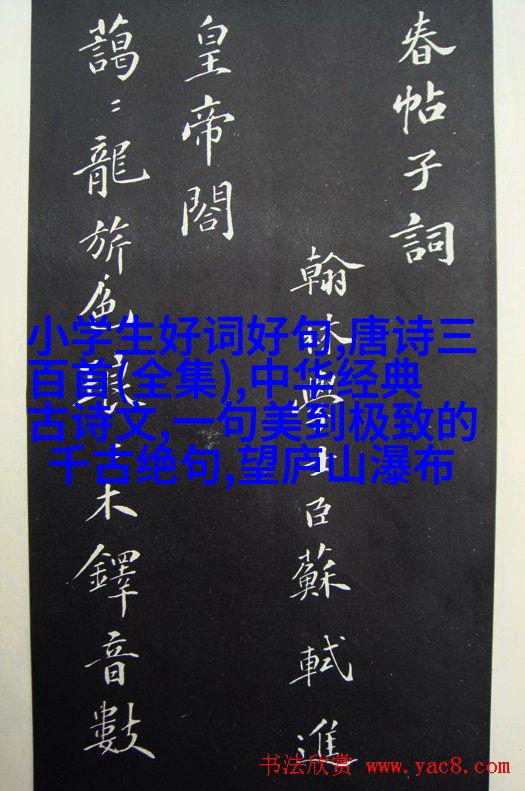 春帖子詞
翰林學士臣蘇軾進
皇帝閤
藹〻龍旂色琅〻木鐸音數
小学生好词好句,唐诗三
百首(全集),中华经典
古诗文,一句美到极致的
千古绝句,望庐山瀑布
书法欣赏 www.yac8.com